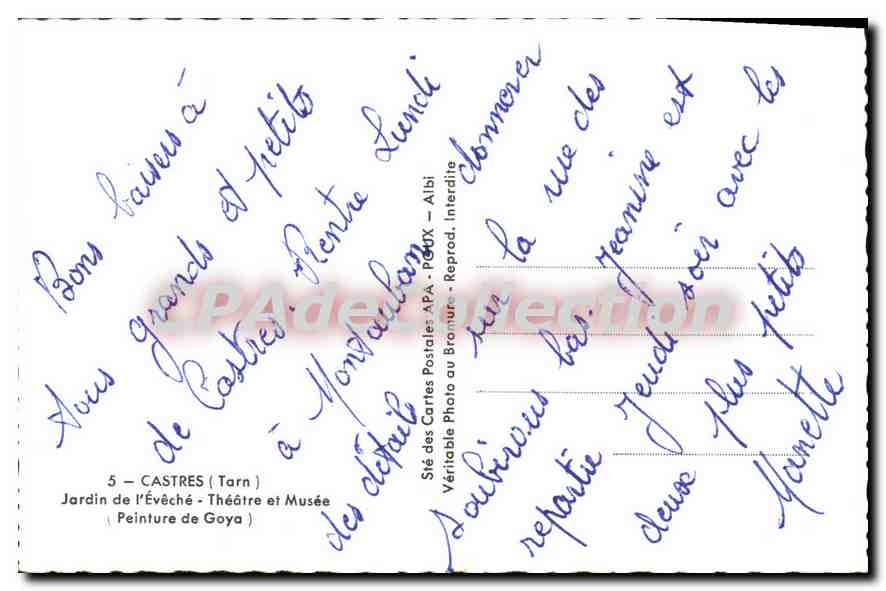 Bons baisers à
tous grands et petits
de Castres. Rentre Lundi
à Montauban donnerer
des détails sur la rue des
Soubirous bas. Jeanine est
repartie Jeudi soir avec les
deux plus petits
Manette
5 — CASTRES (Tarn)
Jardin de l'Évêché - Théâtre et Musée
(Peinture de Goya)
Sté des Cartes Postales APA - POUX — Albi
Véritable Photo au Bromure - Reprod. Interdite
CPAdeCollection